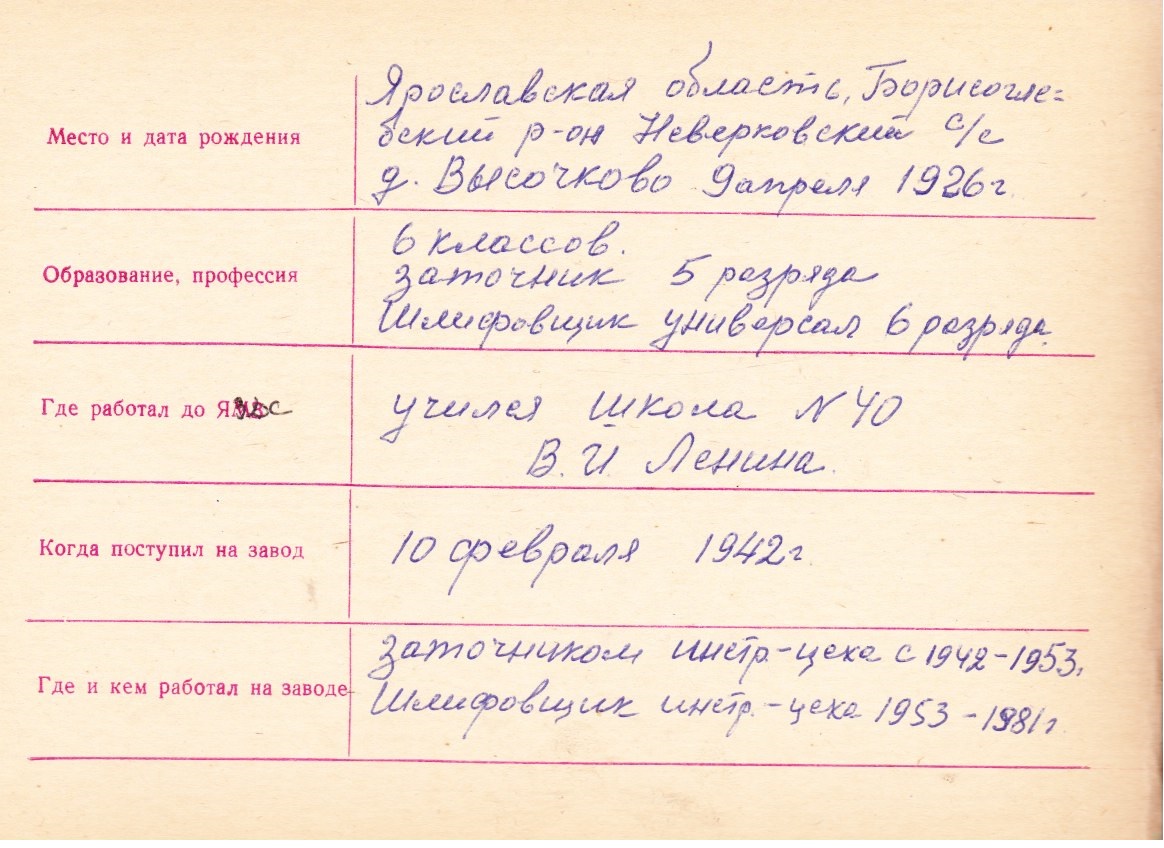 Место и дата рождения
Ярославская область, Борисогле=
бский р-он Неверковский с/с
д. Высочково 9 апреля 1926 г.
Образование, профессия
6 классов.
заточник 5 разряда
Шлифовщик универсал 6 разряда.
Где работал до
учился школа N 40
В. И. Ленина.
Когда поступил на завод
10 февраля 1942 г.
Где и кем работал на заводе
заточником инстр-цеха с 1942-1953.
Шлифовщик инстр.-цеха 1953-1981 г.